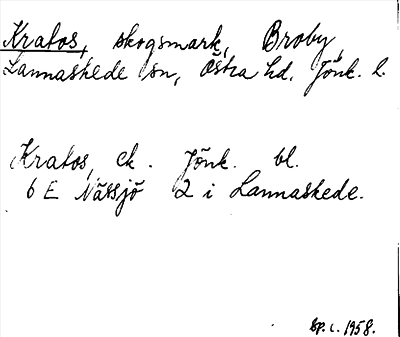 Kratos, skogsmark, Broby,
Lannaskede sn, Östra hd. Jönk. l.
Kratos, ek. Jönk. bl.
6 E Nässjö 2 i Lannaskede.
Sp. c. 1958.